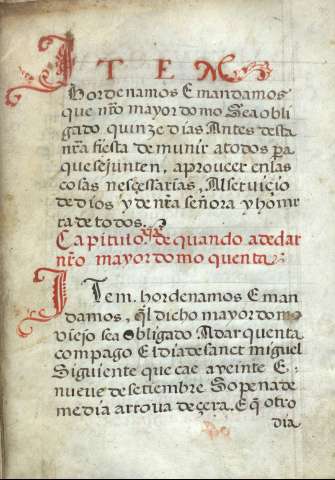 ITEM
hordenamos E mandamos
que nr̃o mayordomo Sea obli
gado quinze dias Antes desta
nr̃a fiesta de munir atodos p̃a
que se junten, aproveer en las
cosas nesçessarias, Al servicio
de dios y de nr̃a señora y honrr
ra de todos.
Capitulo de quando a de dar
nr̃o mayordomo quenta
ITem. hordenamos E man
damos, q̃l dicho mayordomo
viejo sea obligado A dar quenta
con pago El dia de sanct miguel
Siguiente que cae a veinte E
nueve de setiembre So pena de
media arrova de çera. E q̃ otro
dia